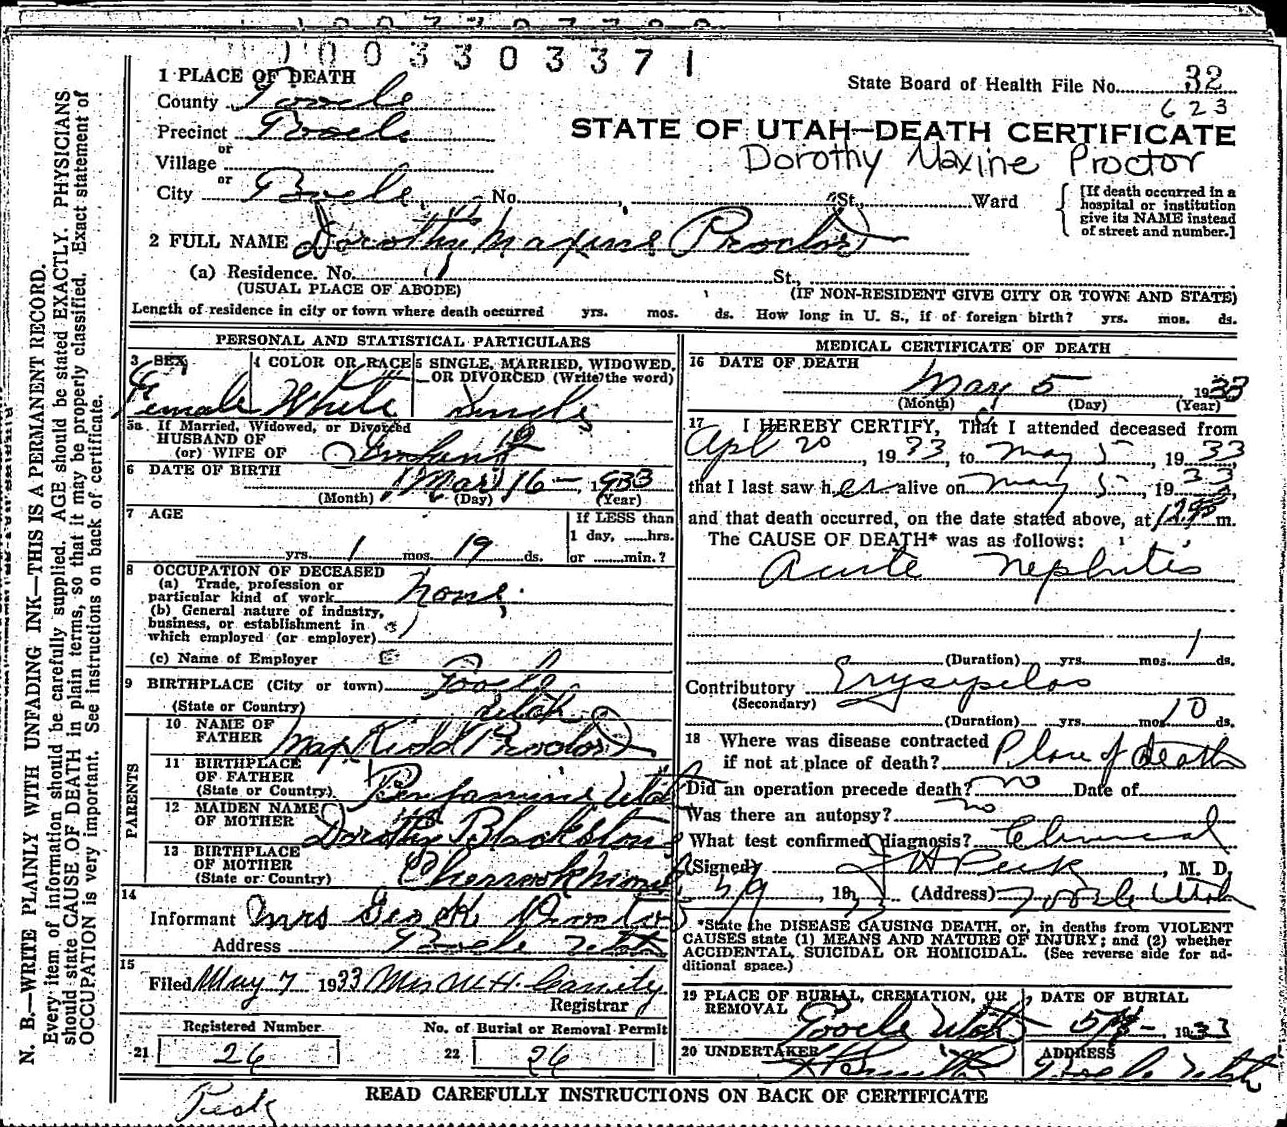 1003303371
1 PLACE OF DEATH
State Board of Health File No. 32
County Tooele
623
Precinct Tooele
STATE OF UTAH—DEATH CERTIFICATE
or
Village
Dorothy Maxine Proctor
or
City Tooele, No. , St., Ward
[If death occurred in a
hospital or institution
give its NAME instead
of street and number.]
2 FULL NAME Dorothy Maxine Proctor
(a) Residence. No. St.,
(USUAL PLACE OF ABODE) (IF NON-RESIDENT GIVE CITY OR TOWN AND STATE)
Length of residence in city or town where death occurred yrs. mos. ds. How long in U. S., if of foreign birth? yrs. mos. ds.
PERSONAL AND STATISTICAL PARTICULARS
3 SEX 4 COLOR OR RACE 5 SINGLE, MARRIED, WIDOWED,
OR DIVORCED (Write the word)
Female White Single
5a If Married, Widowed, or Divorced
HUSBAND OF
(or) WIFE OF Infant
6 DATE OF BIRTH
Mar 16 — 1933
(Month) (Day) (Year)
7 AGE
If LESS than
1 day, hrs.
yrs. 1 mos. 19 ds. or min.?
8 OCCUPATION OF DECEASED
(a) Trade, profession or
particular kind of work none
(b) General nature of industry,
business, or establishment in
which employed (or employer)
(c) Name of Employer
9 BIRTHPLACE (City or town) Tooele
(State or Country) Utah
PARENTS
10 NAME OF
FATHER Proctor
11 BIRTHPLACE
OF FATHER
(State or Country) Benjamine Utah
12 MAIDEN NAME
OF MOTHER Dorothy Blackstone
13 BIRTHPLACE
OF MOTHER
(State or Country)
14
Informant Mrs Geo K Proctor
Address Tooele Utah
15
Filed May 7 1933 Mrs
Registrar
Registered Number No. of Burial or Removal Permit
21 26 22 26
MEDICAL CERTIFICATE OF DEATH
16 DATE OF DEATH
May 5 1933
(Month) (Day) (Year)
17 I HEREBY CERTIFY, That I attended deceased from
Apl 20, 1933, to May 5, 1933,
that I last saw her alive on May 5, 1933,
and that death occurred, on the date stated above, at m.
The CAUSE OF DEATH* was as follows:
Acute Nephritis
(Duration) yrs. mos. 1 ds.
Contributory Erysypelas
(Secondary)
(Duration) yrs. mos. 10 ds.
18 Where was disease contracted
if not at place of death? Place of death
Did an operation precede death? no Date of
Was there an autopsy? no
What test confirmed diagnosis? Clinical
(Signed) J H Peck, M. D.
5/9, 1933 (Address) Tooele Utah
*State the DISEASE CAUSING DEATH, or, in deaths from VIOLENT
CAUSES state (1) MEANS AND NATURE OF INJURY; and (2) whether
ACCIDENTAL, SUICIDAL OR HOMICIDAL. (See reverse side for ad-
ditional space.)
19 PLACE OF BURIAL, CREMATION, OR
REMOVAL
Tooele Utah
DATE OF BURIAL
1933
20 UNDERTAKER
ADDRESS
Tooele Utah
READ CAREFULLY INSTRUCTIONS ON BACK OF CERTIFICATE
Peck
N. B.—WRITE PLAINLY WITH UNFADING INK—THIS IS A PERMANENT RECORD.
Every item of information should be carefully supplied. AGE should be stated EXACTLY. PHYSICIANS
should state CAUSE OF DEATH in plain terms, so that it may be properly classified. Exact statement of
OCCUPATION is very important. See instructions on back of certificate.